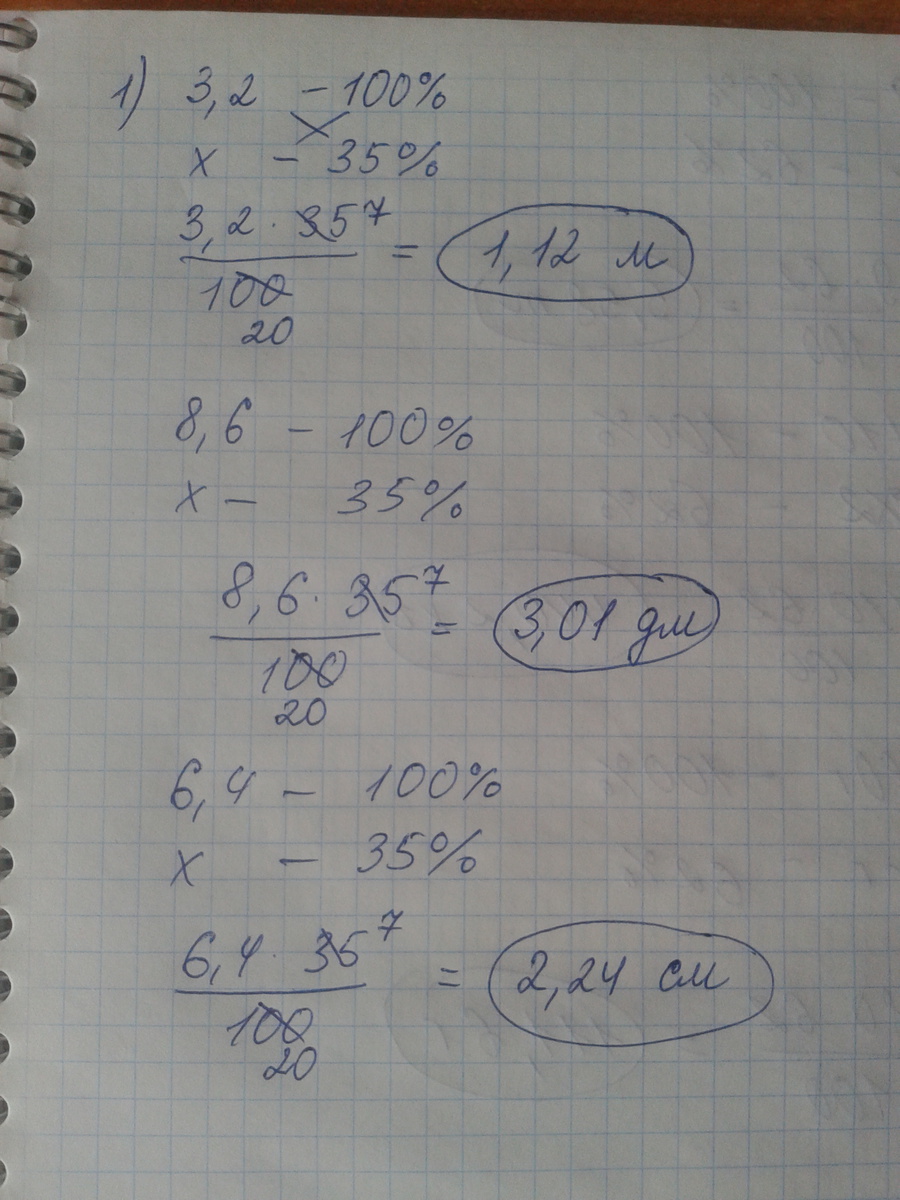 1) 3,2 - 100%
x - 35%
3,2 · 35 7
100
20
= 1,12 м
8,6 - 100%
x - 35%
8,6 · 35 7
100
20
= 3,01 дм
6,4 - 100%
x - 35%
6,4 · 35 7
100
20
= 2,24 см